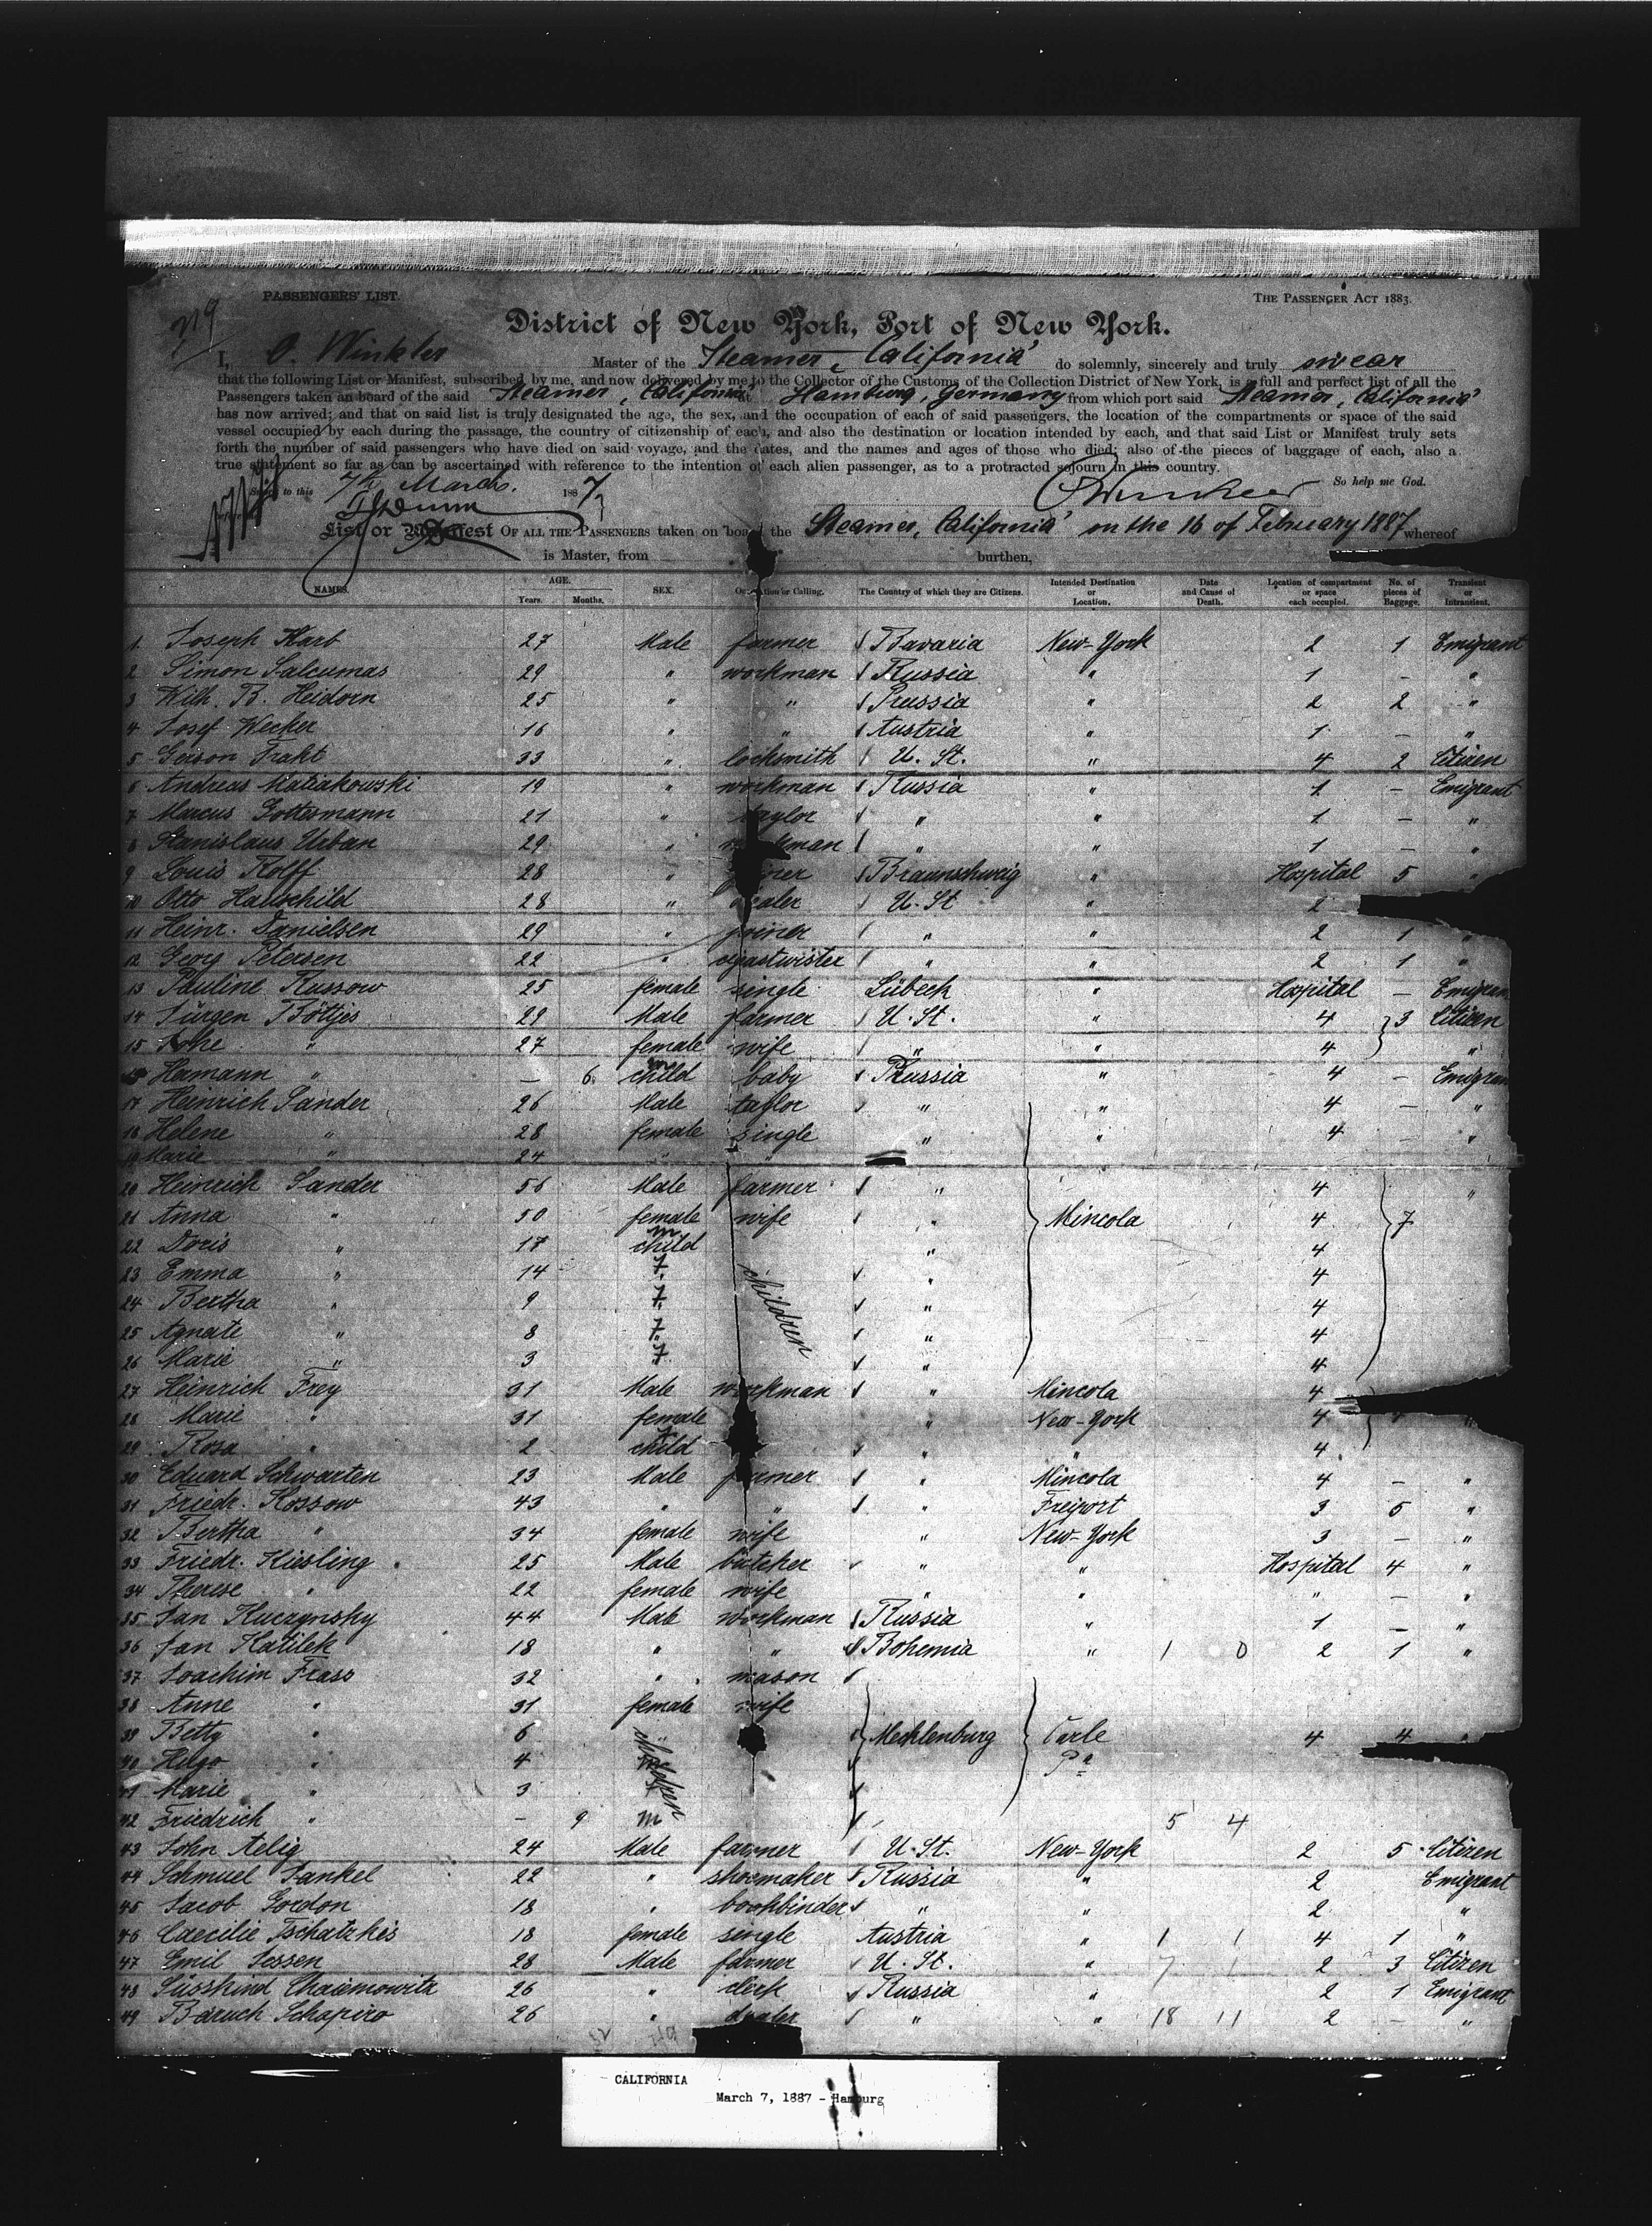 PASSENGERS' LIST. THE PASSENGER ACT 1883.
719
District of New York, Port of New York.
I, O. Winkler Master of the Steamer „California" do solemnly, sincerely and truly swear
that the following List or Manifest, subscribed by me, and now delivered by me to the Collector of the Customs of the Collection District of New York, is a full and perfect list of all the
Passengers taken on board of the said Steamer „California" at Hamburg, Germany from which port said Steamer „California"
has now arrived; and that on said list is truly designated the age, the sex, and the occupation of each of said passengers, the location of the compartments or space of the said
vessel occupied by each during the passage, the country of citizenship of each, and also the destination or location intended by each, and that said List or Manifest truly sets
forth the number of said passengers who have died on said voyage, and the dates, and the names and ages of those who died; also of the pieces of baggage of each, also a
true statement so far as can be ascertained with reference to the intention of each alien passenger, as to a protracted sojourn in this country.
Sworn to this 7th March. 1887 So help me God.
OWinkler
List or Manifest OF ALL THE PASSENGERS taken on board the Steamer „California" on the 16 of February 1887 whereof
is Master, from burthen,
NAMES. AGE. Years. Months. SEX. Occupation or Calling. The Country of which they are Citizens. Intended Destination or Location. Date and Cause of Death. Location of compartment or space each occupied. No. of pieces of Baggage. Transient or Intransient.
1. Joseph Harb 27 Male farmer Bavaria New-York 2 1 Emigrant
2 Simon Salcumas 29 " workman Russia " 1 – "
3 Wilh. B. Heidorn 25 " " Prussia " 2 2 "
4 Josef Wecker 16 " " Austria " 1 – "
5 Gerson Frakt 33 " locksmith U. St. " 4 2 Citizen
6 Andreas Matiakowski 19 " workman Russia " 1 – Emigrant
7 Marcus Gottesmann 21 " taylor " " 1 – "
8 Stanislaus Urban 29 " workman " " 1 – "
9 Louis Rolff 28 " joiner Braunshweig " Hospital 5 "
10 Otto Hauschild 28 " dealer U. St " 2
11 Heinr. Danielsen 29 " joiner " " 2 1 "
12 Georg Petersen 22 " cigartwister " " 2 1 "
13 Pauline Russow 25 female single Lübeck " Hospital – Emigran
14 Jürgen Böttjes 29 Male farmer U. St. " 4 3 Citizen
15 " 27 female wife " " 4 "
16 Hermann " – 6 m child baby Prussia " 4 – Emigran
17 Heinrich Sander 26 Male taylor " " 4 – "
18 Helene " 28 female single " " 4 – "
19 Marie " 24 " "
20 Heinrich Sander 56 Male farmer " 4 "
21 Anna " 50 female wife " Mineola 4 7
22 Doris " 17 m child " 4
23 Emma " 14 f. children " 4
24 Bertha " 9 f. " 4
25 Agnete " 8 f. " 4
26 Marie " 3 f. " 4
27 Heinrich Frey 31 Male workman " Mineola 4
28 Marie " 31 female " New-York 4 "
29 Rosa " 2 child " " 4
30 Eduard Schwarten 23 Male farmer " Mineola 4 – "
31 Friedr. Kossow 43 " " " Freiport 3 5 "
32 Bertha " 34 female wife " New-York 3 – "
33 Friedr. Kiesling 25 Male butcher " " Hospital 4 "
34 Therese " 22 female wife " " " – "
35 Jan Kuczynsky 44 Male workman Russia " 1 – "
36 Jan Hatilek 18 " " Bohemia " 1 0 2 1 "
37 Joachim Frass 32 " mason
38 Anne " 31 female wife
39 Betty " 6 children Mecklenburg Carle 4 4 "
40 Helgo " 4 Pa
41 Marie " 3
42 Friedrich " – 9 m 5 4
43 John Aelig 24 Male farmer U. St. New-York 2 5 Citizen
44 Schmuel Jankel 22 " shoemaker Russia " 2 Emigrant
45 Jacob Gordon 18 " bookbinder " " 2 "
46 Caecilie Tschatzkes 18 female single Austria " 1 1 4 1 "
47 Emil Jessen 28 Male farmer U. St. " 7 1 2 3 Citizen
48 Süsskind Chaiemowitz 26 " clerk Russia " 2 1 Emigrant
49 Baruch Schapiro 26 " dealer " " 18 11 2 – "
CALIFORNIA
March 7, 1887 - Hamburg